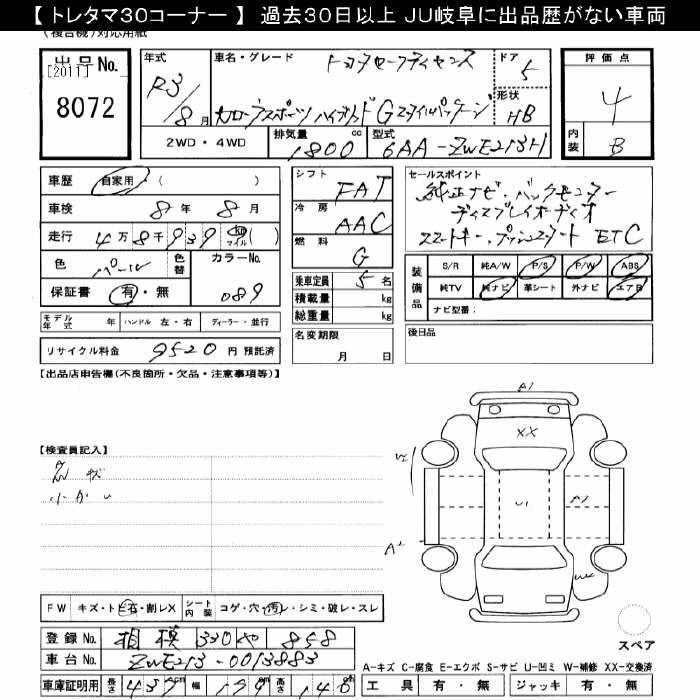 【 トレタマ30コーナー 】 過去30日以上 JU岐阜に出品歴がない車両
(複合機)対応用紙
出品No.
[2011]
8072
年式
R3/8月
車名・グレード
トヨタセーフティセンス
カローラスポーツ ハイブリッド Gスタイルパッケージ
ドア
5
形状
HB
評価点
4
内装
B
2WD・4WD
排気量
1800 cc
型式
6AA-ZWE213H
車歴
自家用・( )
車検 8年 8月
走行 4万8千939 km マイル ( )
色 パール
色替
カラーNo.
089
保証書 有・無
シフト FAT
冷房 AAC
燃料 G
乗車定員 5名
積載量 kg
総重量 kg
セールスポイント
純正ナビ・バックモニター
ディスプレイオーディオ
スマートキー・プッシュスタート ETC
装備品
S/R 純A/W P/S P/W ABS
純TV 純ナビ 革シート 外ナビ エアB
ナビ型番:
モデル年式 年 ハンドル 左・右 ディーラー・並行
リサイクル料金 9520 円 預託済
名変期限
月 日
後日品
【出品店申告欄(不良箇所・欠品・注意事項等)】
【検査員記入】
キズ
小かい
A1
XX
W2
U1
A1
A2
FW キズ・トビ石・割レX シート内装 コゲ・穴・汚レ・シミ・破レ・スレ
登録No. 相模 330 や 858
車台No. ZWE213-0013883
車庫証明用 長さ 437cm 幅 179cm 高さ 146cm
スペア
A-キズ C-腐食 E-エクボ S-サビ U-凹ミ W-補修 XX-交換済
工具 有・無 ジャッキ 有・無